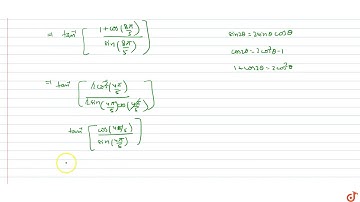 ⇒ tan⁻¹ [ (1 + cos(8π/5)) / sin(8π/5) ]
sin2θ = 2sinθ cosθ
cos2θ = 2cos²θ - 1
1 + cos2θ = 2cos²θ
⇒ tan⁻¹ [ 2cos²(4π/5) / 2sin(4π/5)cos(4π/5) ]
tan⁻¹ [ cos(4π/5) / sin(4π/5) ]